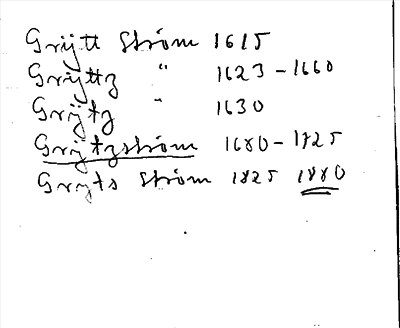 Grijtt Strøm 1615
Grijttz " 1623 - 1660
Grijtz " 1630
Grijtzstrøm 1680 - 1825
Gryts Strøm 1825 1880